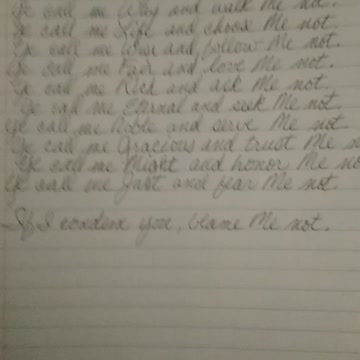 Ye call me Way and walk Me not.
Ye call me Life and choose Me not.
Ye call me Wise and follow Me not.
Ye call me Fair and love Me not.
Ye call me Rich and ask Me not.
Ye call me Eternal and seek Me not.
Ye call me Noble and serve Me not.
Ye call me Gracious and trust Me n
Ye call me Might and honor Me no
Ye call me Just and fear Me not.
If I condem you, blame Me not.